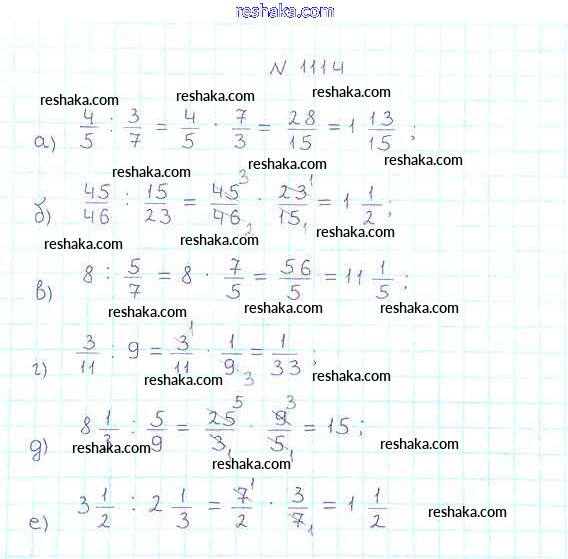 reshaka.com
N 1114
reshaka.com reshaka.com reshaka.com
а) 4/5 : 3/7 = 4/5 · 7/3 = 28/15 = 1 13/15 ;
reshaka.com reshaka.com reshaka.com
б) 45/46 : 15/23 = 45 3/46 2 · 23 1/15 1 = 1 1/2 ;
reshaka.com reshaka.com reshaka.com
в) 8 : 5/7 = 8 · 7/5 = 56/5 = 11 1/5 ;
reshaka.com reshaka.com reshaka.com
г) 3/11 : 9 = 3 1/11 · 1/9 3 = 1/33 ;
reshaka.com reshaka.com
д) 8 1/3 : 5/9 = 25 5/3 1 · 9 3/5 1 = 15 ;
reshaka.com reshaka.com
reshaka.com
е) 3 1/2 : 2 1/3 = 7 1/2 · 3/7 1 = 1 1/2
reshaka.com reshaka.com
reshaka.com